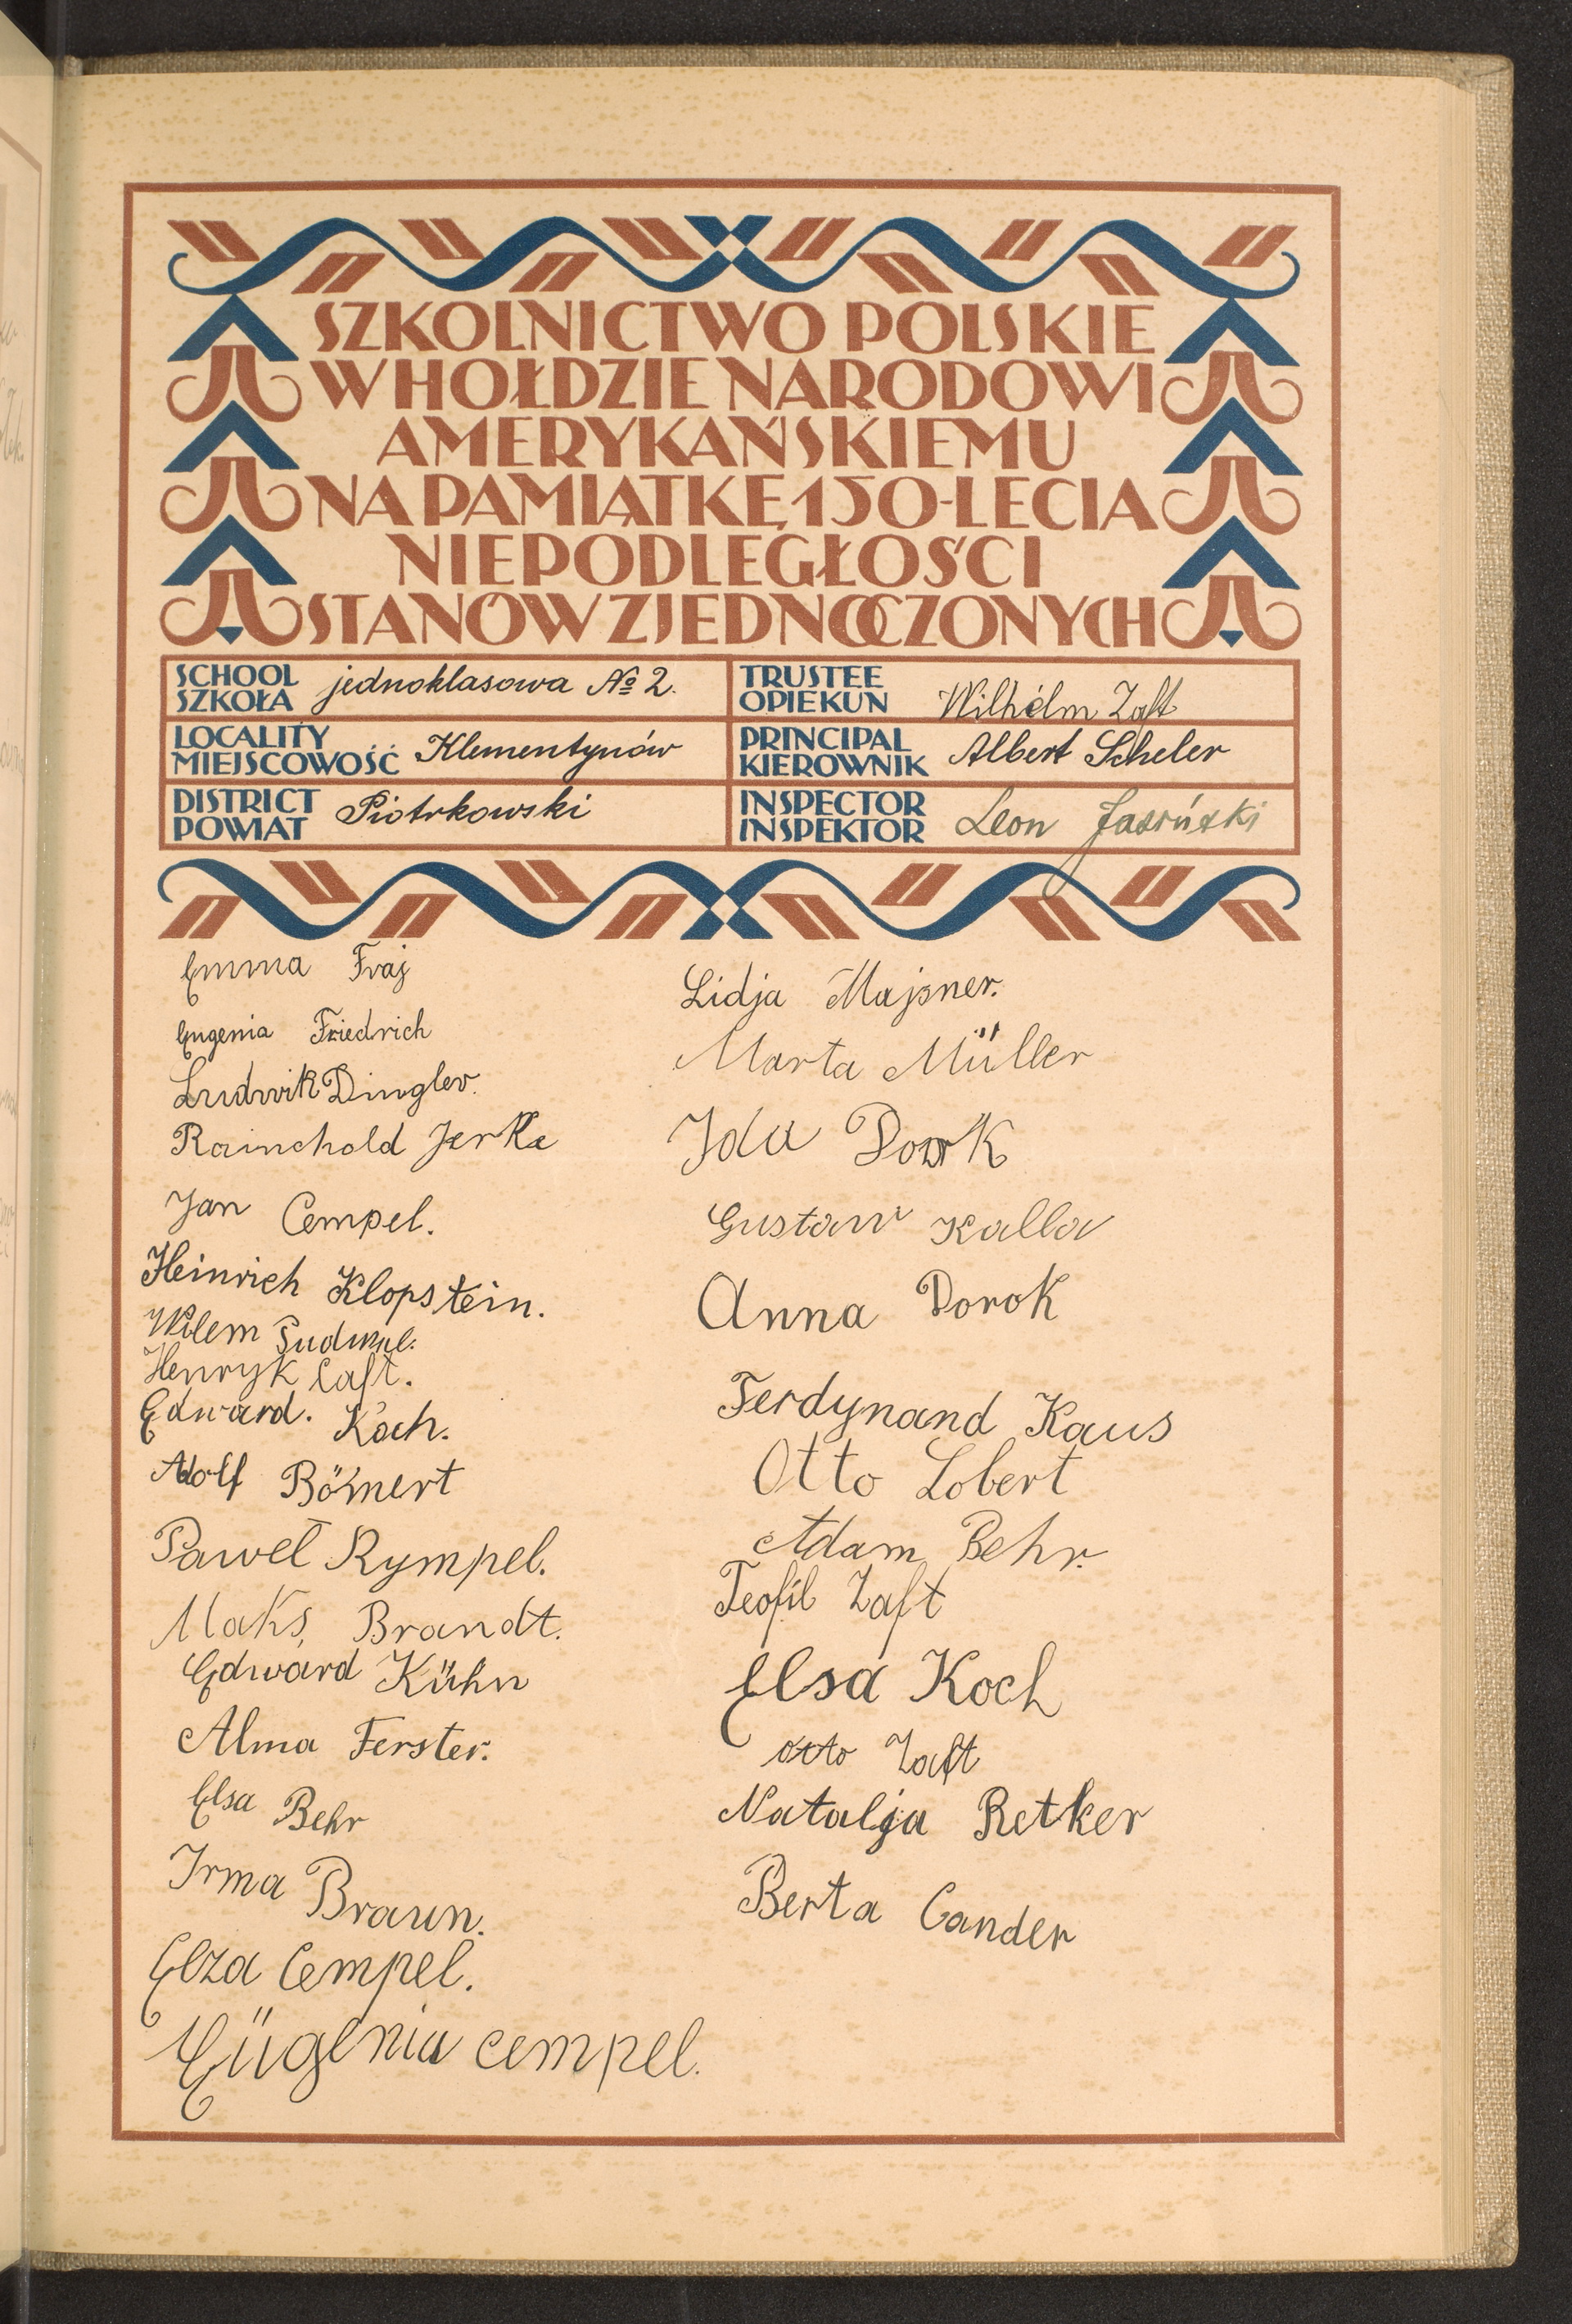 SZKOLNICTWO POLSKIE
W HOŁDZIE NARODOWI
AMERYKAŃSKIEMU
NA PAMIĄTKĘ 150-LECIA
NIEPODLEGŁOŚCI
STANÓW ZJEDNOCZONYCH
SCHOOL
SZKOŁA jednoklasowa № 2.
LOCALITY
MIEJSCOWOŚĆ Klementynów
DISTRICT
POWIAT Piotrkowski
TRUSTEE
OPIEKUN Wilhelm Zaft
PRINCIPAL
KIEROWNIK Albert Scheler
INSPECTOR
INSPEKTOR Leon Jasiński
Emma Fraj
Eugenia Friedrich
Ludwik Dingler.
Rainchold Jerke
Jan Cempel.
Heinrich Klopstein.
Wilem
Henryk Caft.
Edward. Koch.
Adolf Böhnert
Paweł Rympel.
Maks, Brandt.
Edward Kühn
Alma Ferster.
Elsa Behr
Irma Braun.
Elza Cempel.
Eügenia cempel.
Lidja Majsner.
Marta Müller
Ida
Gustaw Kalla
Anna Dorok
Ferdynand Kaus
Otto Lobert
Adam Behr.
Teofil Zaft
Elsa Koch
Otto Zaft
Natalja Retker
Berta Gander